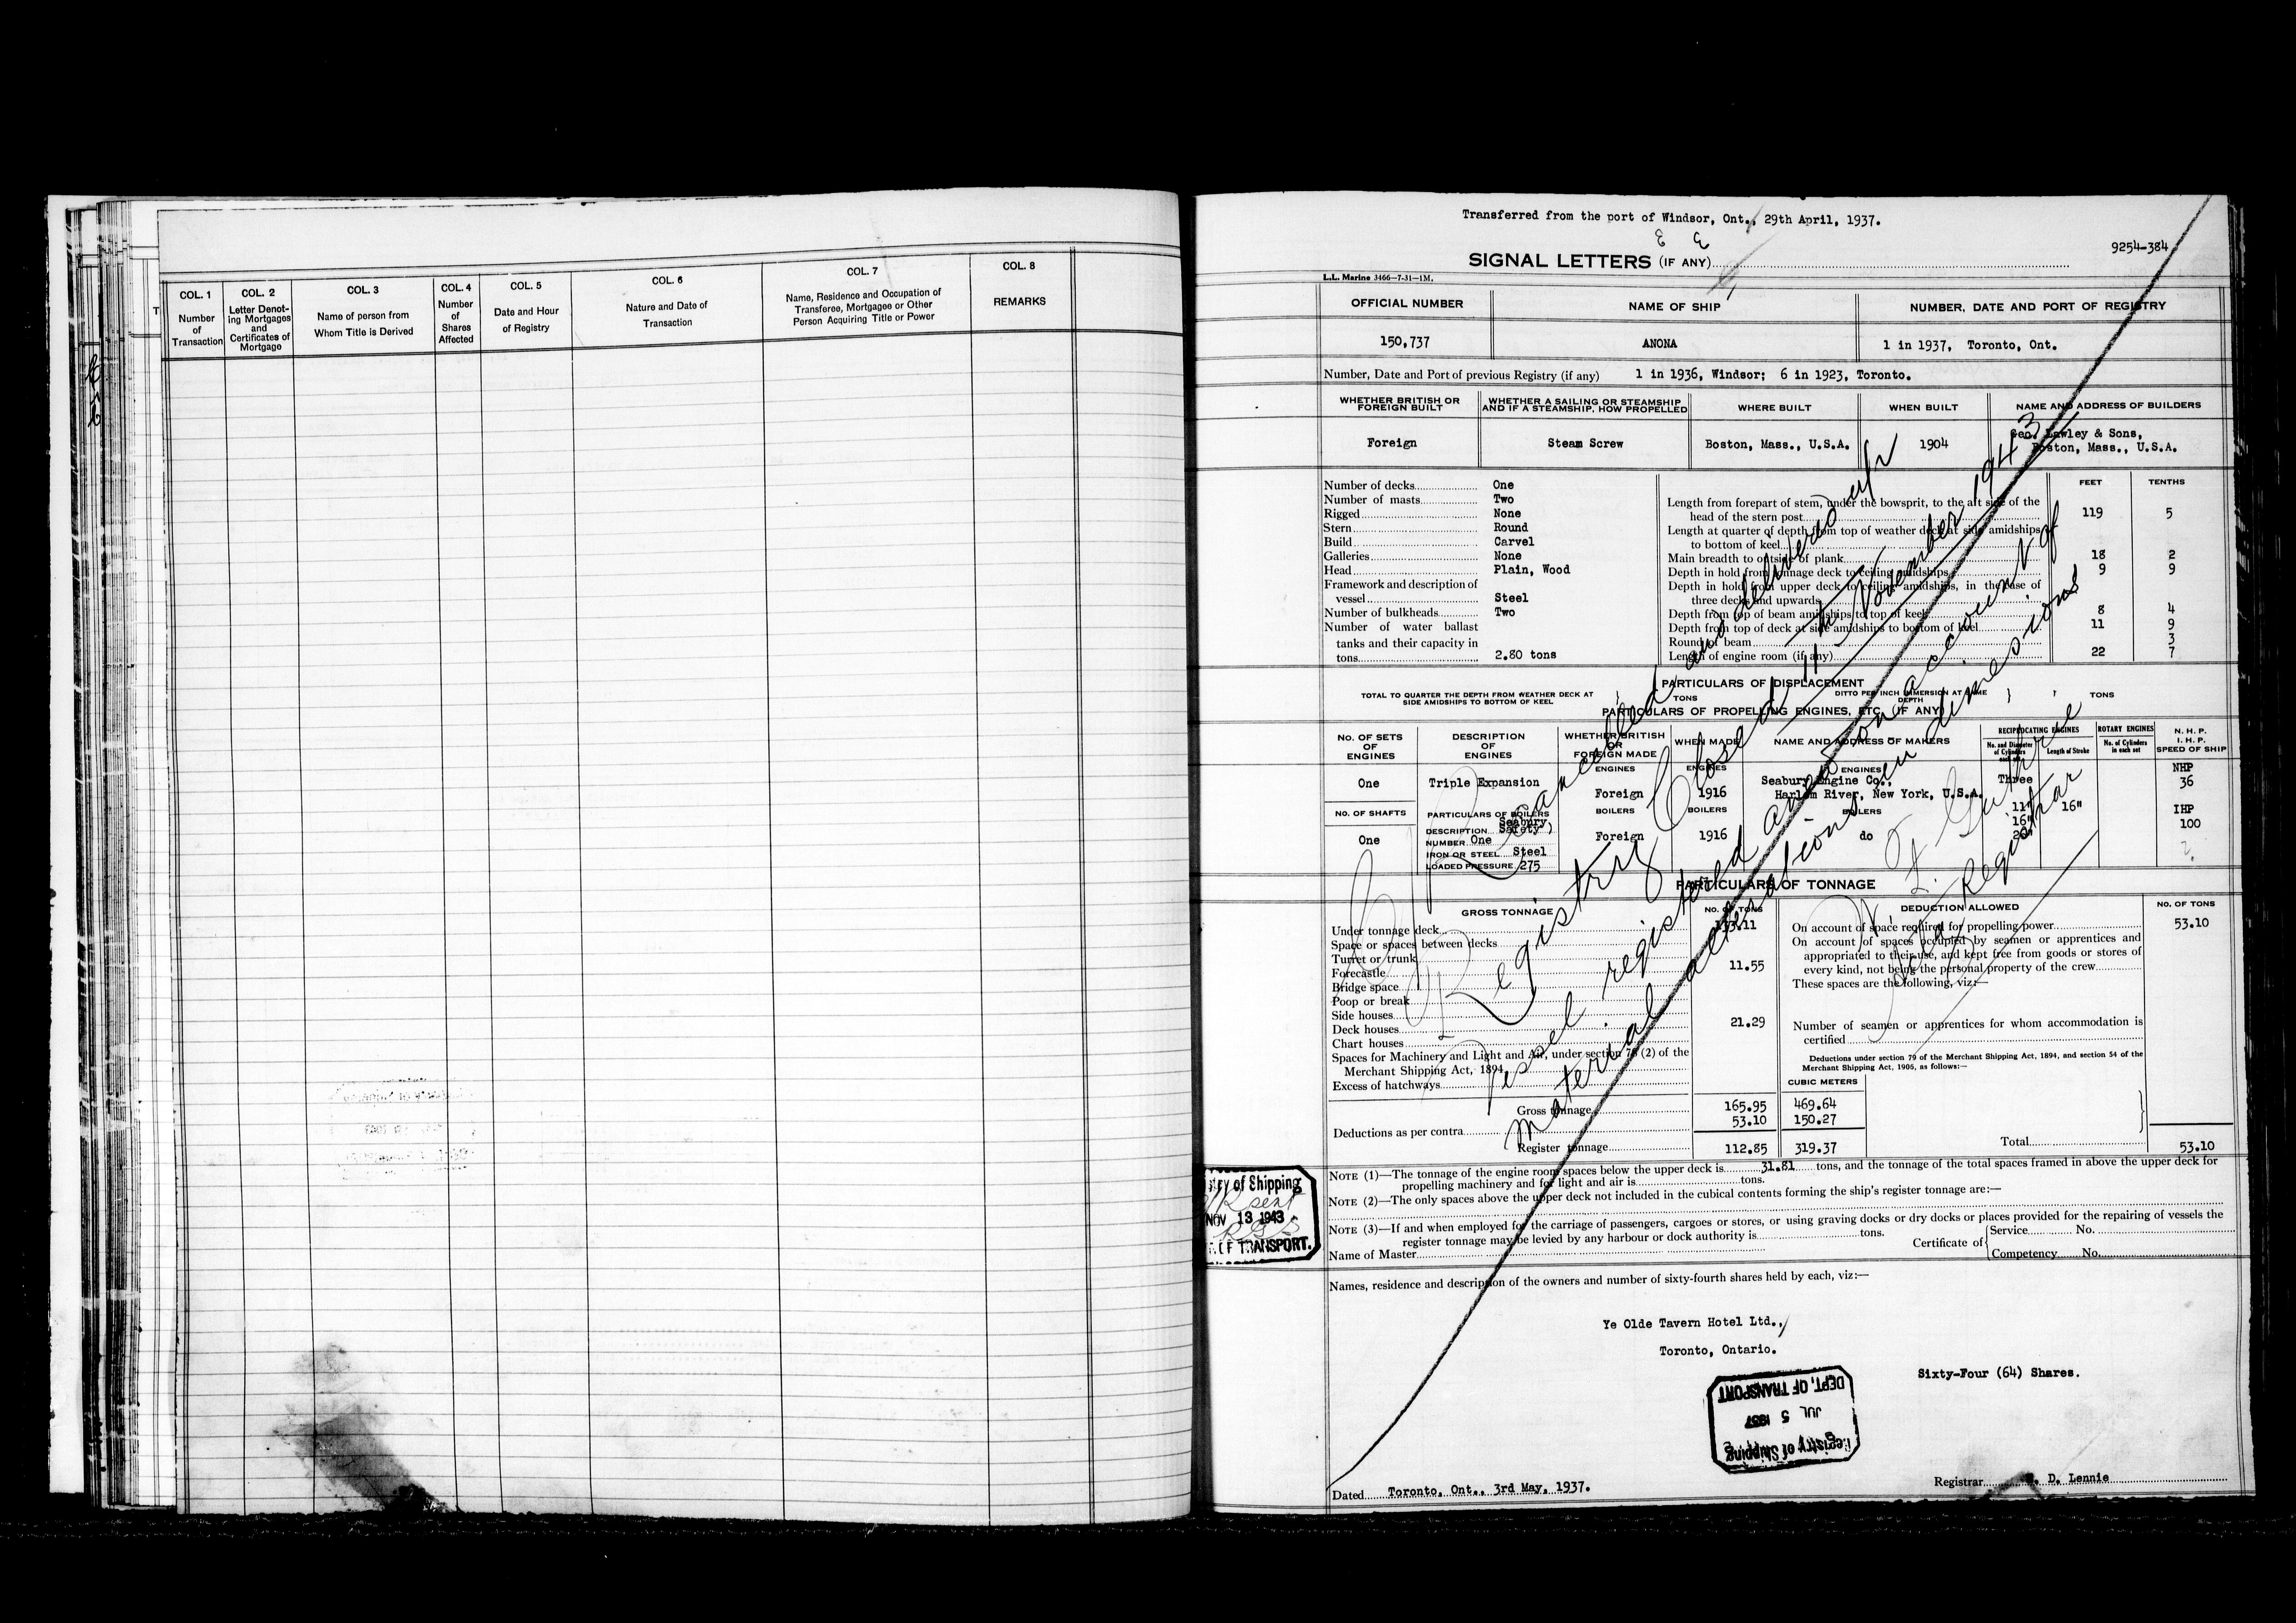 COL. 1
Number
of
Transaction
COL. 2
Letter Denot-
ing Mortgages
and
Certificates of
Mortgage
COL. 3
Name of person from
Whom Title is Derived
COL. 4
Number
of
Shares
Affected
COL. 5
Date and Hour
of Registry
COL. 6
Nature and Date of
Transaction
COL. 7
Name, Residence and Occupation of
Transferee, Mortgagee or Other
Person Acquiring Title or Power
COL. 8
REMARKS
Transferred from the port of Windsor, Ont., 29th April, 1937.
9254-384
SIGNAL LETTERS (IF ANY)
L.L. Marine 3466—7-31—1M.
OFFICIAL NUMBER NAME OF SHIP NUMBER, DATE AND PORT OF REGISTRY
150,737 ANONA 1 in 1937, Toronto, Ont.
Number, Date and Port of previous Registry (if any) 1 in 1936, Windsor; 6 in 1923, Toronto.
WHETHER BRITISH OR
FOREIGN BUILT
WHETHER A SAILING OR STEAMSHIP
AND IF A STEAMSHIP, HOW PROPELLED
WHERE BUILT WHEN BUILT NAME AND ADDRESS OF BUILDERS
Foreign Steam Screw Boston, Mass., U.S.A. 1904 Geo. Lawley & Sons,
Boston, Mass., U.S.A.
Number of decks One
Number of masts Two
Rigged None
Stern Round
Build Carvel
Galleries None
Head Plain, Wood
Framework and description of
vessel Steel
Number of bulkheads Two
Number of water ballast
tanks and their capacity in
tons 2.80 tons
FEET TENTHS
Length from forepart of stem, under the bowsprit, to the aft side of the
head of the stern post 119 5
Length at quarter of depth from top of weather deck at side amidships
to bottom of keel
Main breadth to outside of plank 18 2
Depth in hold from tonnage deck to ceiling amidships 9 9
Depth in hold from upper deck to ceiling amidships, in the case of
three decks and upwards
Depth from top of beam amidships to top of keel 8 4
Depth from top of deck at side amidships to bottom of keel 11 9
Round of beam 3
Length of engine room (if any) 22 7
PARTICULARS OF DISPLACEMENT
TOTAL TO QUARTER THE DEPTH FROM WEATHER DECK AT
SIDE AMIDSHIPS TO BOTTOM OF KEEL
TONS
DITTO PER INCH IMMERSION AT SAME
DEPTH
TONS
PARTICULARS OF PROPELLING ENGINES, ETC. (IF ANY)
NO. OF SETS
OF
ENGINES
DESCRIPTION
OF
ENGINES
WHETHER BRITISH
OR
FOREIGN MADE
WHEN MADE
NAME AND ADDRESS OF MAKERS
RECIPROCATING ENGINES
No. and Diameter
of Cylinders
each set
Length of Stroke
ROTARY ENGINES
No. of Cylinders
in each set
N. H. P.
I. H. P.
SPEED OF SHIP
ENGINES ENGINES ENGINES
One Triple Expansion Foreign 1916 Seabury Engine Co.,
Harlem River, New York, U.S.A.
Three
11" 16"
16"
NHP
36
IHP
100
NO. OF SHAFTS
One
PARTICULARS OF BOILERS
DESCRIPTION Seabury
Safety
NUMBER One
IRON OR STEEL Steel
LOADED PRESSURE 275
BOILERS BOILERS BOILERS
Foreign 1916 do
PARTICULARS OF TONNAGE
GROSS TONNAGE NO. OF TONS
Under tonnage deck 133.11
Space or spaces between decks
Turret or trunk
Forecastle 11.55
Bridge space
Poop or break
Side houses
Deck houses 21.29
Chart houses
Spaces for Machinery and Light and Air, under section 78 (2) of the
Merchant Shipping Act, 1894
Excess of hatchways
CUBIC METERS
Gross tonnage 165.95 469.64
Deductions as per contra 53.10 150.27
Register tonnage 112.85 319.37
DEDUCTION ALLOWED NO. OF TONS
On account of space required for propelling power 53.10
On account of spaces occupied by seamen or apprentices and
appropriated to their use, and kept free from goods or stores of
every kind, not being the personal property of the crew
These spaces are the following, viz:—
Number of seamen or apprentices for whom accommodation is
certified
Deductions under section 79 of the Merchant Shipping Act, 1894, and section 54 of the
Merchant Shipping Act, 1906, as follows:—
Total 53.10
NOTE (1)—The tonnage of the engine room spaces below the upper deck is 31.81 tons, and the tonnage of the total spaces framed in above the upper deck for
propelling machinery and for light and air is tons.
NOTE (2)—The only spaces above the upper deck not included in the cubical contents forming the ship's register tonnage are:—
NOTE (3)—If and when employed for the carriage of passengers, cargoes or stores, or using graving docks or dry docks or places provided for the repairing of vessels the
register tonnage may be levied by any harbour or dock authority is tons.
Name of Master
Certificate of Service No.
Competency No.
Names, residence and description of the owners and number of sixty-fourth shares held by each, viz:—
Ye Olde Tavern Hotel Ltd.,
Toronto, Ontario.
Sixty-Four (64) Shares.
Dated Toronto, Ont., 3rd May, 1937.
Registrar D. Lennie
cancelled and delivered up
Registry Closed 11th November 1943
Vessel registered anew on account of
material alterations in dimensions
Registrar
stry of Shipping
NOV 13 1943
OF TRANSPORT.
Registry of Shipping
JUL 5 1937
DEPT. OF TRANSPORT